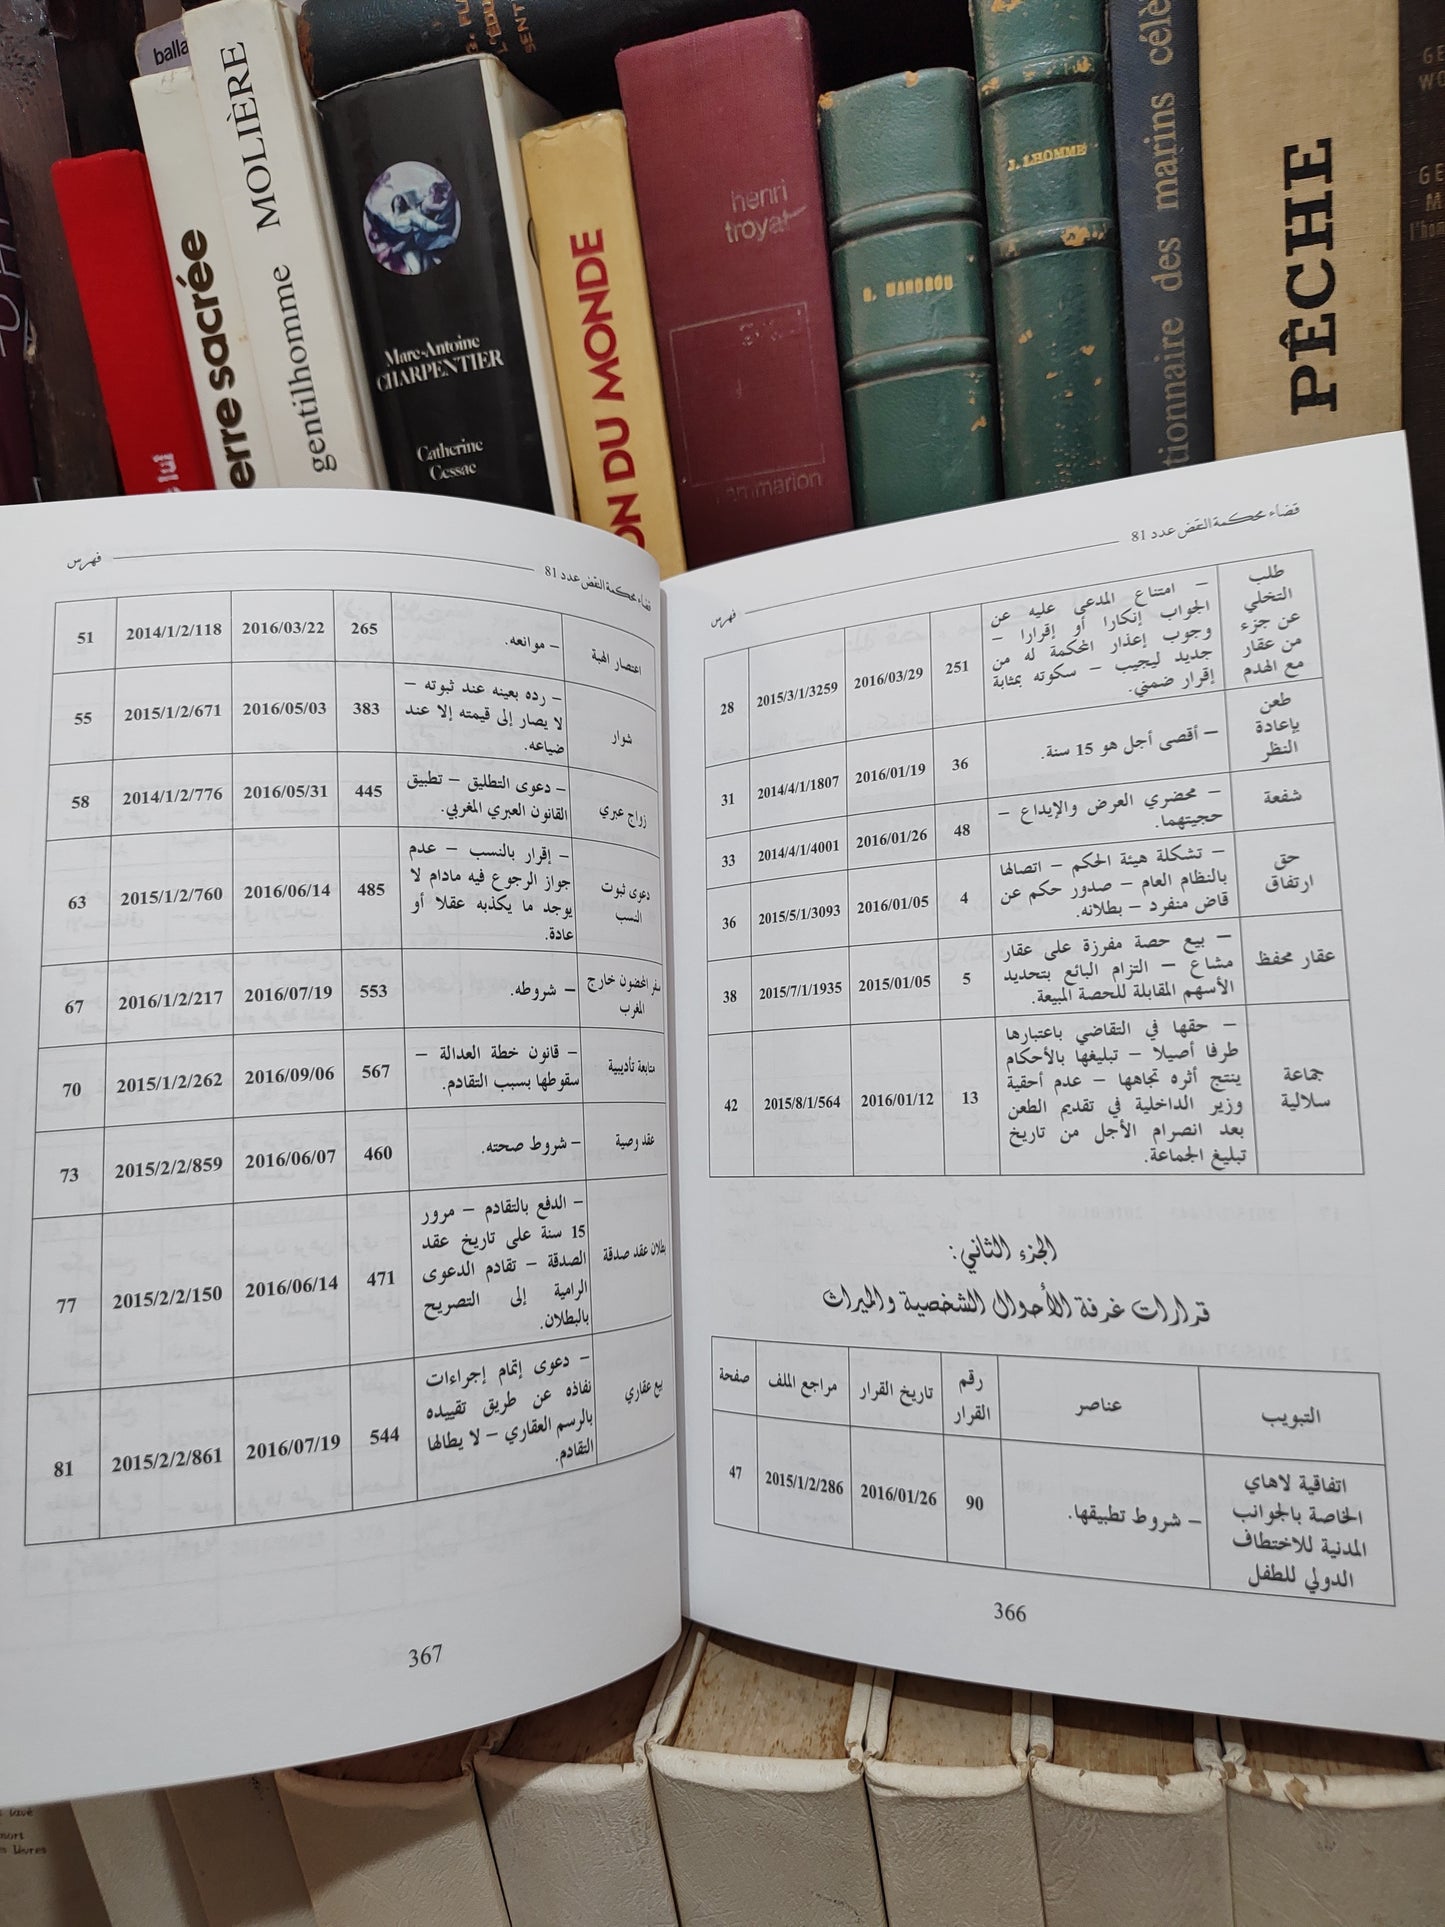 balla
MOLIÈRE
gentilhomme
erre sacrée
lui
Marc-Antoine
CHARPENTIER
Catherine
Cessac
ON DU MONDE
henri
troyat
flammarion
R. MANDROU
J. LHOMME
tionnaire des marins célè
PÊCHE
قضاء محكمة النقض عدد 81
فهرس
طلب التخلي عن جزء من عقار مع الهدم
– امتناع المدعى عليه عن
الجواب إنكارا أو إقرارا –
وجوب إعذار المحكمة له من
جديد ليجيب – سكوته بمثابة
إقرار ضمني.
251 2016/03/29 2015/3/1/3259 28
طعن بإعادة النظر
– أقصى أجل هو 15 سنة.
36 2016/01/19 2014/4/1/1807 31
شفعة
– محضري العرض والإيداع –
حجيتهما.
48 2016/01/26 2014/4/1/4001 33
حق ارتفاق
– تشكلة هيئة الحكم – اتصالها
بالنظام العام – صدور حكم عن
قاض منفرد – بطلانه.
4 2016/01/05 2015/5/1/3093 36
عقار محفظ
– بيع حصة مفرزة على عقار
مشاع – التزام البائع بتحديد
الأسهم المقابلة للحصة المبيعة.
5 2015/01/05 2015/7/1/1935 38
جماعة سلالية
– حقها في التقاضي باعتبارها
طرفا أصيلا – تبليغها بالأحكام
ينتج أثره تجاهها – عدم أحقية
وزير الداخلية في تقديم الطعن
بعد انصرام الأجل من تاريخ
تبليغ الجماعة.
13 2016/01/12 2015/8/1/564 42
الجزء الثاني:
قرارات غرفة الأحوال الشخصية والميراث
التبويب عناصر رقم القرار تاريخ القرار مراجع الملف صفحة
اتفاقية لاهاي
الخاصة بالجوانب
المدنية للاختطاف
الدولي للطفل
– شروط تطبيقها.
90 2016/01/26 2015/1/2/286 47
366
قضاء محكمة النقض عدد 81
فهرس
اعتصار الهبة – موانعه. 265 2016/03/22 2014/1/2/118 51
شوار
– رده بعينه عند ثبوته –
لا يصار إلى قيمته إلا عند
ضياعه.
383 2016/05/03 2015/1/2/671 55
زواج عبري
– دعوى التطليق – تطبيق
القانون العبري المغربي.
445 2016/05/31 2014/1/2/776 58
دعوى ثبوت النسب
– إقرار بالنسب – عدم
جواز الرجوع فيه مادام لا
يوجد ما يكذبه عقلا أو
عادة.
485 2016/06/14 2015/1/2/760 63
سفر المحضون خارج المغرب
– شروطه.
553 2016/07/19 2016/1/2/217 67
متابعة تأديبية
– قانون خطة العدالة –
سقوطها بسبب التقادم.
567 2016/09/06 2015/1/2/262 70
عقد وصية – شروط صحته. 460 2016/06/07 2015/2/2/859 73
بطلان عقد صدقة
– الدفع بالتقادم – مرور
15 سنة على تاريخ عقد
الصدقة – تقادم الدعوى
الرامية إلى التصريح
بالبطلان.
471 2016/06/14 2015/2/2/150 77
بيع عقاري
– دعوى إتمام إجراءات
نفاذه عن طريق تقييده
بالرسم العقاري – لا يطالها
التقادم.
544 2016/07/19 2015/2/2/861 81
367